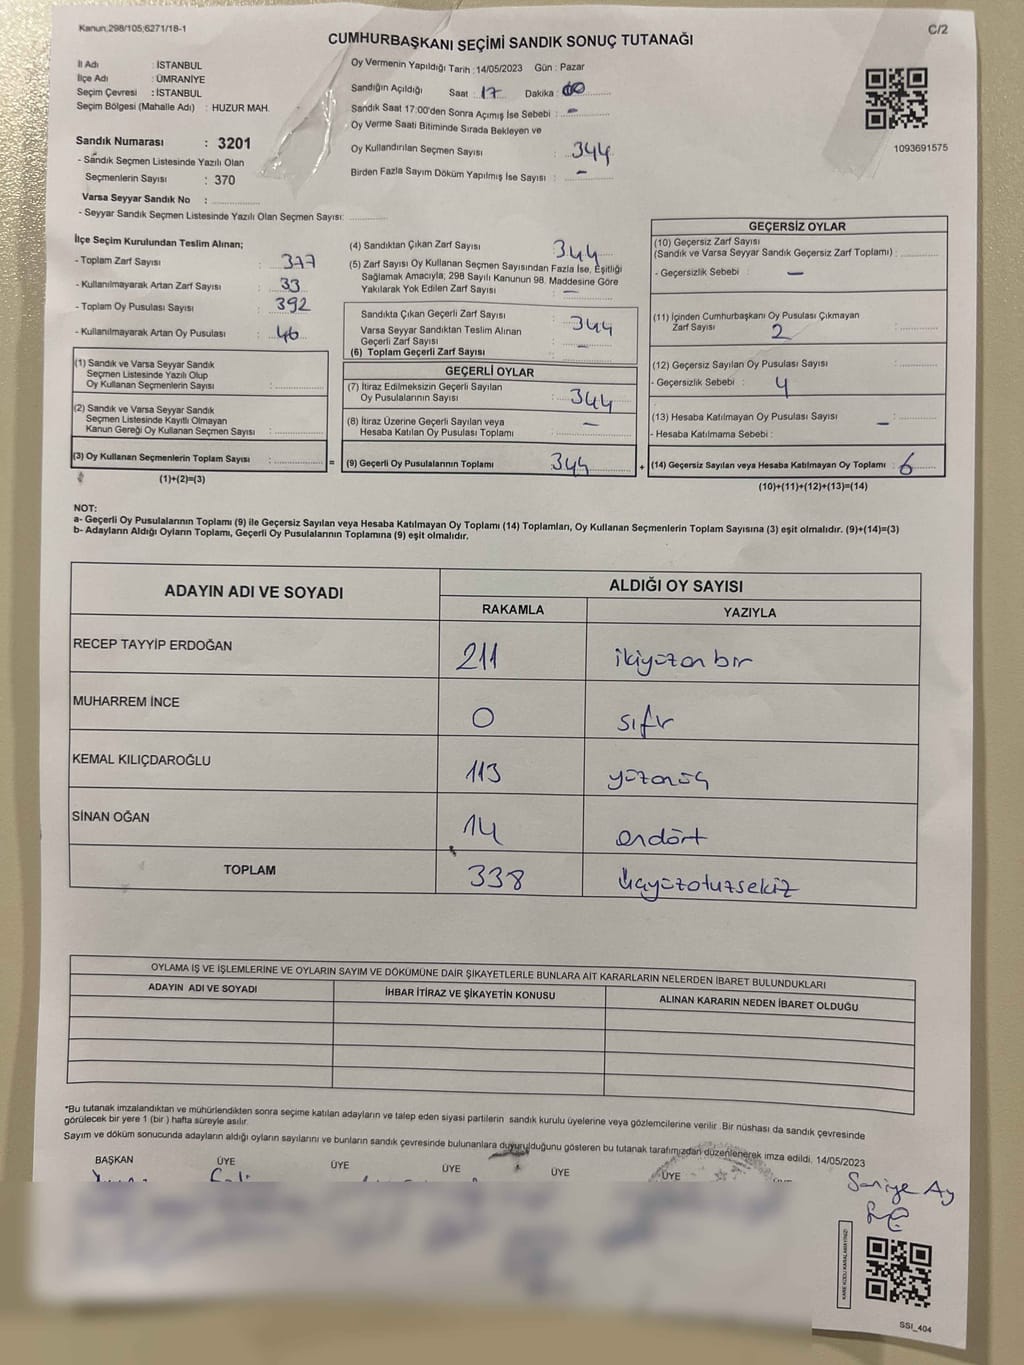 Kanun:298/105;6271/18-1
C/2
CUMHURBAŞKANI SEÇİMİ SANDIK SONUÇ TUTANAĞI
İl Adı : İSTANBUL
İlçe Adı : ÜMRANİYE
Seçim Çevresi : İSTANBUL
Seçim Bölgesi (Mahalle Adı) : HUZUR MAH.
Sandık Numarası : 3201
- Sandık Seçmen Listesinde Yazılı Olan
Seçmenlerin Sayısı : 370
Varsa Seyyar Sandık No :
- Seyyar Sandık Seçmen Listesinde Yazılı Olan Seçmen Sayısı:
Oy Vermenin Yapıldığı Tarih : 14/05/2023 Gün : Pazar
Sandığın Açıldığı Saat : 17 Dakika : 00
Sandık Saat 17:00'den Sonra Açımış İse Sebebi : -
Oy Verme Saati Bitiminde Sırada Bekleyen ve
Oy Kullandırılan Seçmen Sayısı : 344
Birden Fazla Sayım Döküm Yapılmış İse Sayısı : -
1093691575
İlçe Seçim Kurulundan Teslim Alınan;
- Toplam Zarf Sayısı : 377
- Kullanılmayarak Artan Zarf Sayısı : 33
- Toplam Oy Pusulası Sayısı : 392
- Kullanılmayarak Artan Oy Pusulası : 46
(1) Sandık ve Varsa Seyyar Sandık
Seçmen Listesinde Yazılı Olup
Oy Kullanan Seçmenlerin Sayısı :
(2) Sandık ve Varsa Seyyar Sandık
Seçmen Listesinde Kayıtlı Olmayan
Kanun Gereği Oy Kullanan Seçmen Sayısı :
(3) Oy Kullanan Seçmenlerin Toplam Sayısı : =
(1)+(2)=(3)
(4) Sandıktan Çıkan Zarf Sayısı : 344
(5) Zarf Sayısı Oy Kullanan Seçmen Sayısından Fazla İse, Eşitliği
Sağlamak Amacıyla; 298 Sayılı Kanunun 98. Maddesine Göre
Yakılarak Yok Edilen Zarf Sayısı : -
Sandıkta Çıkan Geçerli Zarf Sayısı : 344
Varsa Seyyar Sandıktan Teslim Alınan
Geçerli Zarf Sayısı : -
(6) Toplam Geçerli Zarf Sayısı :
GEÇERLİ OYLAR
(7) İtiraz Edilmeksizin Geçerli Sayılan
Oy Pusulalarının Sayısı : 344
(8) İtiraz Üzerine Geçerli Sayılan veya
Hesaba Katılan Oy Pusulası Toplamı : -
(9) Geçerli Oy Pusulalarının Toplamı : 344 +
GEÇERSİZ OYLAR
(10) Geçersiz Zarf Sayısı
(Sandık ve Varsa Seyyar Sandık Geçersiz Zarf Toplamı) :
- Geçersizlik Sebebi : -
(11) İçinden Cumhurbaşkanı Oy Pusulası Çıkmayan
Zarf Sayısı : 2
(12) Geçersiz Sayılan Oy Pusulası Sayısı :
- Geçersizlik Sebebi : 4
(13) Hesaba Katılmayan Oy Pusulası Sayısı : -
- Hesaba Katılmama Sebebi :
(14) Geçersiz Sayılan veya Hesaba Katılmayan Oy Toplamı : 6
(10)+(11)+(12)+(13)=(14)
NOT:
a- Geçerli Oy Pusulalarının Toplamı (9) ile Geçersiz Sayılan veya Hesaba Katılmayan Oy Toplamı (14) Toplamları, Oy Kullanan Seçmenlerin Toplam Sayısına (3) eşit olmalıdır. (9)+(14)=(3)
b- Adayların Aldığı Oyların Toplamı, Geçerli Oy Pusulalarının Toplamına (9) eşit olmalıdır.
ADAYIN ADI VE SOYADI ALDIĞI OY SAYISI
RAKAMLA YAZIYLA
RECEP TAYYİP ERDOĞAN 211 ikiyüzon bir
MUHARREM İNCE 0 sıfır
KEMAL KILIÇDAROĞLU 113 yüzonüç
SİNAN OĞAN 14 ondört
TOPLAM 338 üçyüzotuzsekiz
OYLAMA İŞ VE İŞLEMLERİNE VE OYLARIN SAYIM VE DÖKÜMÜNE DAİR ŞİKAYETLERLE BUNLARA AİT KARARLARIN NELERDEN İBARET BULUNDUKLARI
ADAYIN ADI VE SOYADI İHBAR İTİRAZ VE ŞİKAYETİN KONUSU ALINAN KARARIN NEDEN İBARET OLDUĞU
*Bu tutanak imzalandıktan ve mühürlendikten sonra seçime katılan adayların ve talep eden siyasi partilerin sandık kurulu üyelerine veya gözlemcilerine verilir. Bir nüshası da sandık çevresinde
görülecek bir yere 1 (bir ) hafta süreyle asılır.
Sayım ve döküm sonucunda adayların aldığı oyların sayılarını ve bunların sandık çevresinde bulunanlara duyurulduğunu gösteren bu tutanak tarafımızdan düzenlenerek imza edildi. 14/05/2023
BAŞKAN ÜYE ÜYE ÜYE ÜYE ÜYE ÜYE
Saniye Ay
KARE KODU KARALAMAYINIZ!
SSI_404